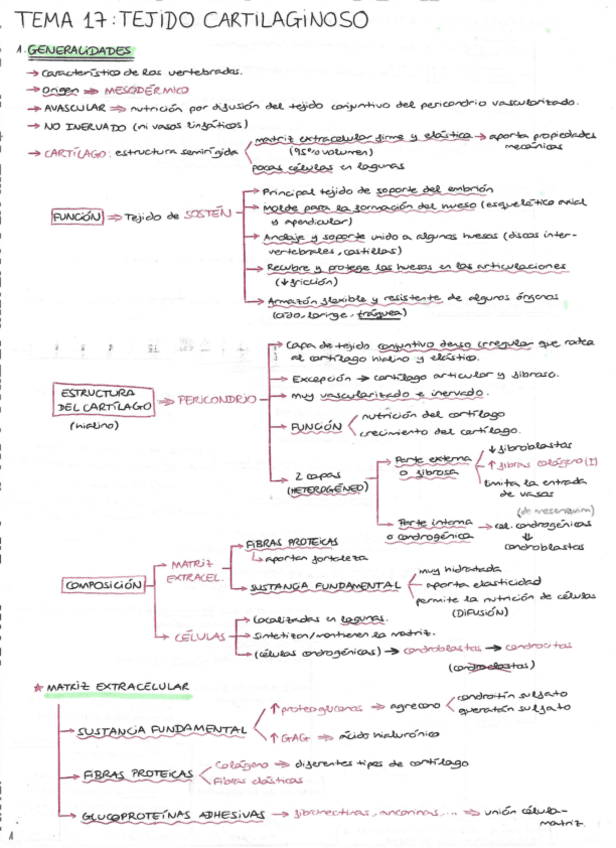 TEMA 17: TEJIDO CARTILAGINOSO
1. GENERALIDADES
→ Característico de los vertebrados.
→ Origen ⇒ MESODÉRMICO
→ AVASCULAR ⇒ nutrición por difusión del tejido conjuntivo del pericondrio vascularizado.
→ NO INERVADO (ni vasos linfáticos)
→ CARTÍLAGO: estructura semirígida
matriz extracelular firme y elástica → aporta propiedades mecánicas
(95% volumen)
pocas células en lagunas
FUNCIÓN ⇒ Tejido de SOSTÉN
→ Principal tejido de soporte del embrión
→ Molde para la formación del hueso (esquelético axial
y apendicular)
→ Anclaje y soporte unido a algunos huesos (discos inter-
vertebrales, costillas)
→ Recubre y protege los huesos en las articulaciones
(↓ fricción)
→ Armazón flexible y resistente de algunos órganos
(oído, laringe, tráquea)
ESTRUCTURA
DEL CARTÍLAGO
(hialino)
⇒ PERICONDRIO
→ Capa de tejido conjuntivo denso irregular que rodea
al cartílago hialino y elástico.
→ Excepción → cartílago articular y fibroso.
→ muy vascularizado e inervado.
→ FUNCIÓN
nutrición del cartílago
crecimiento del cartílago.
→ 2 capas
(HETEROGÉNEO)
→ Parte externa
o fibrosa
↓ fibroblastos
↑ fibras colágeno (I)
limita la entrada
de vasos
→ Parte interna
o condrogénica
(de mesénquima)
→ cel. condrogénicas
⇓
condroblastos
COMPOSICIÓN
→ MATRIZ
EXTRACEL.
→ FIBRAS PROTEICAS
↳ aportan fortaleza
→ SUSTANCIA FUNDAMENTAL
muy hidratada
aporta elasticidad
permite la nutrición de células
(DIFUSIÓN)
→ CÉLULAS
→ Localizadas en lagunas.
→ Sintetizan/mantienen la matriz.
→ (células condrogénicas) → condroblastos → condrocitos
(condroclastos)
★ MATRIZ EXTRACELULAR
→ SUSTANCIA FUNDAMENTAL
↑ proteoglucanos ⇒ agrecano
condroitín sulfato
queratán sulfato
↑ GAG ⇒ ácido hialurónico
→ FIBRAS PROTEICAS
Colágeno ⇒ diferentes tipos de cartílago
Fibras elásticas
→ GLUCOPROTEÍNAS ADHESIVAS → fibronectinas, ancorinas,... ⇒ unión célula-
matriz.
1